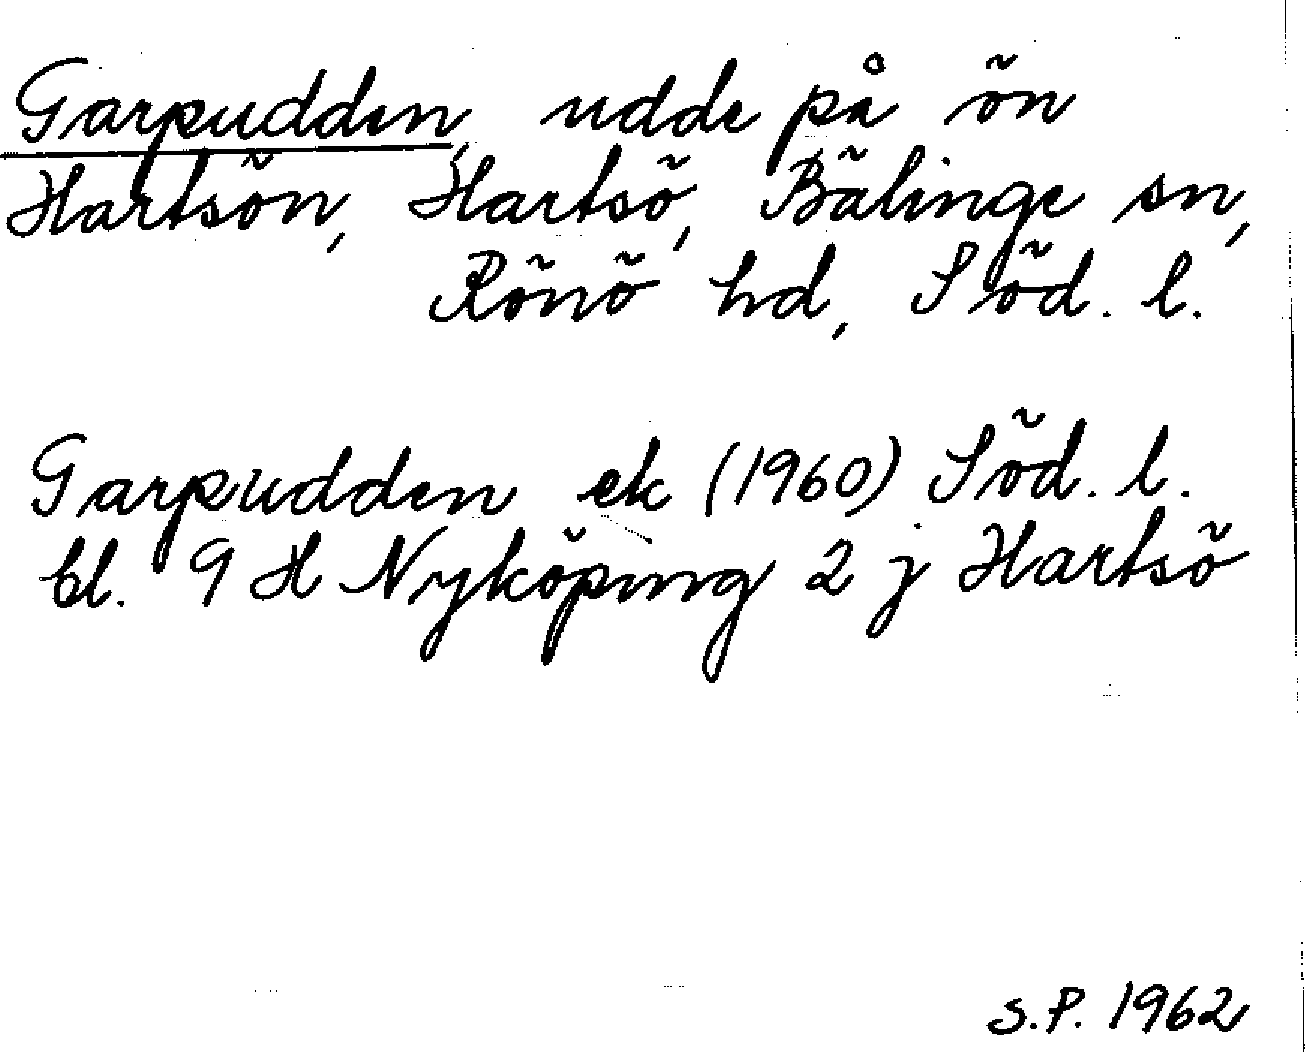 Garpudden, udde på ön
Hartsön, Hartsö, Bälinge sn,
Rönö hd, Söd. l.
Garpudden ek (1960) Söd. l.
bl. 9 H Nyköping 2 j Hartsö
S.P. 1962